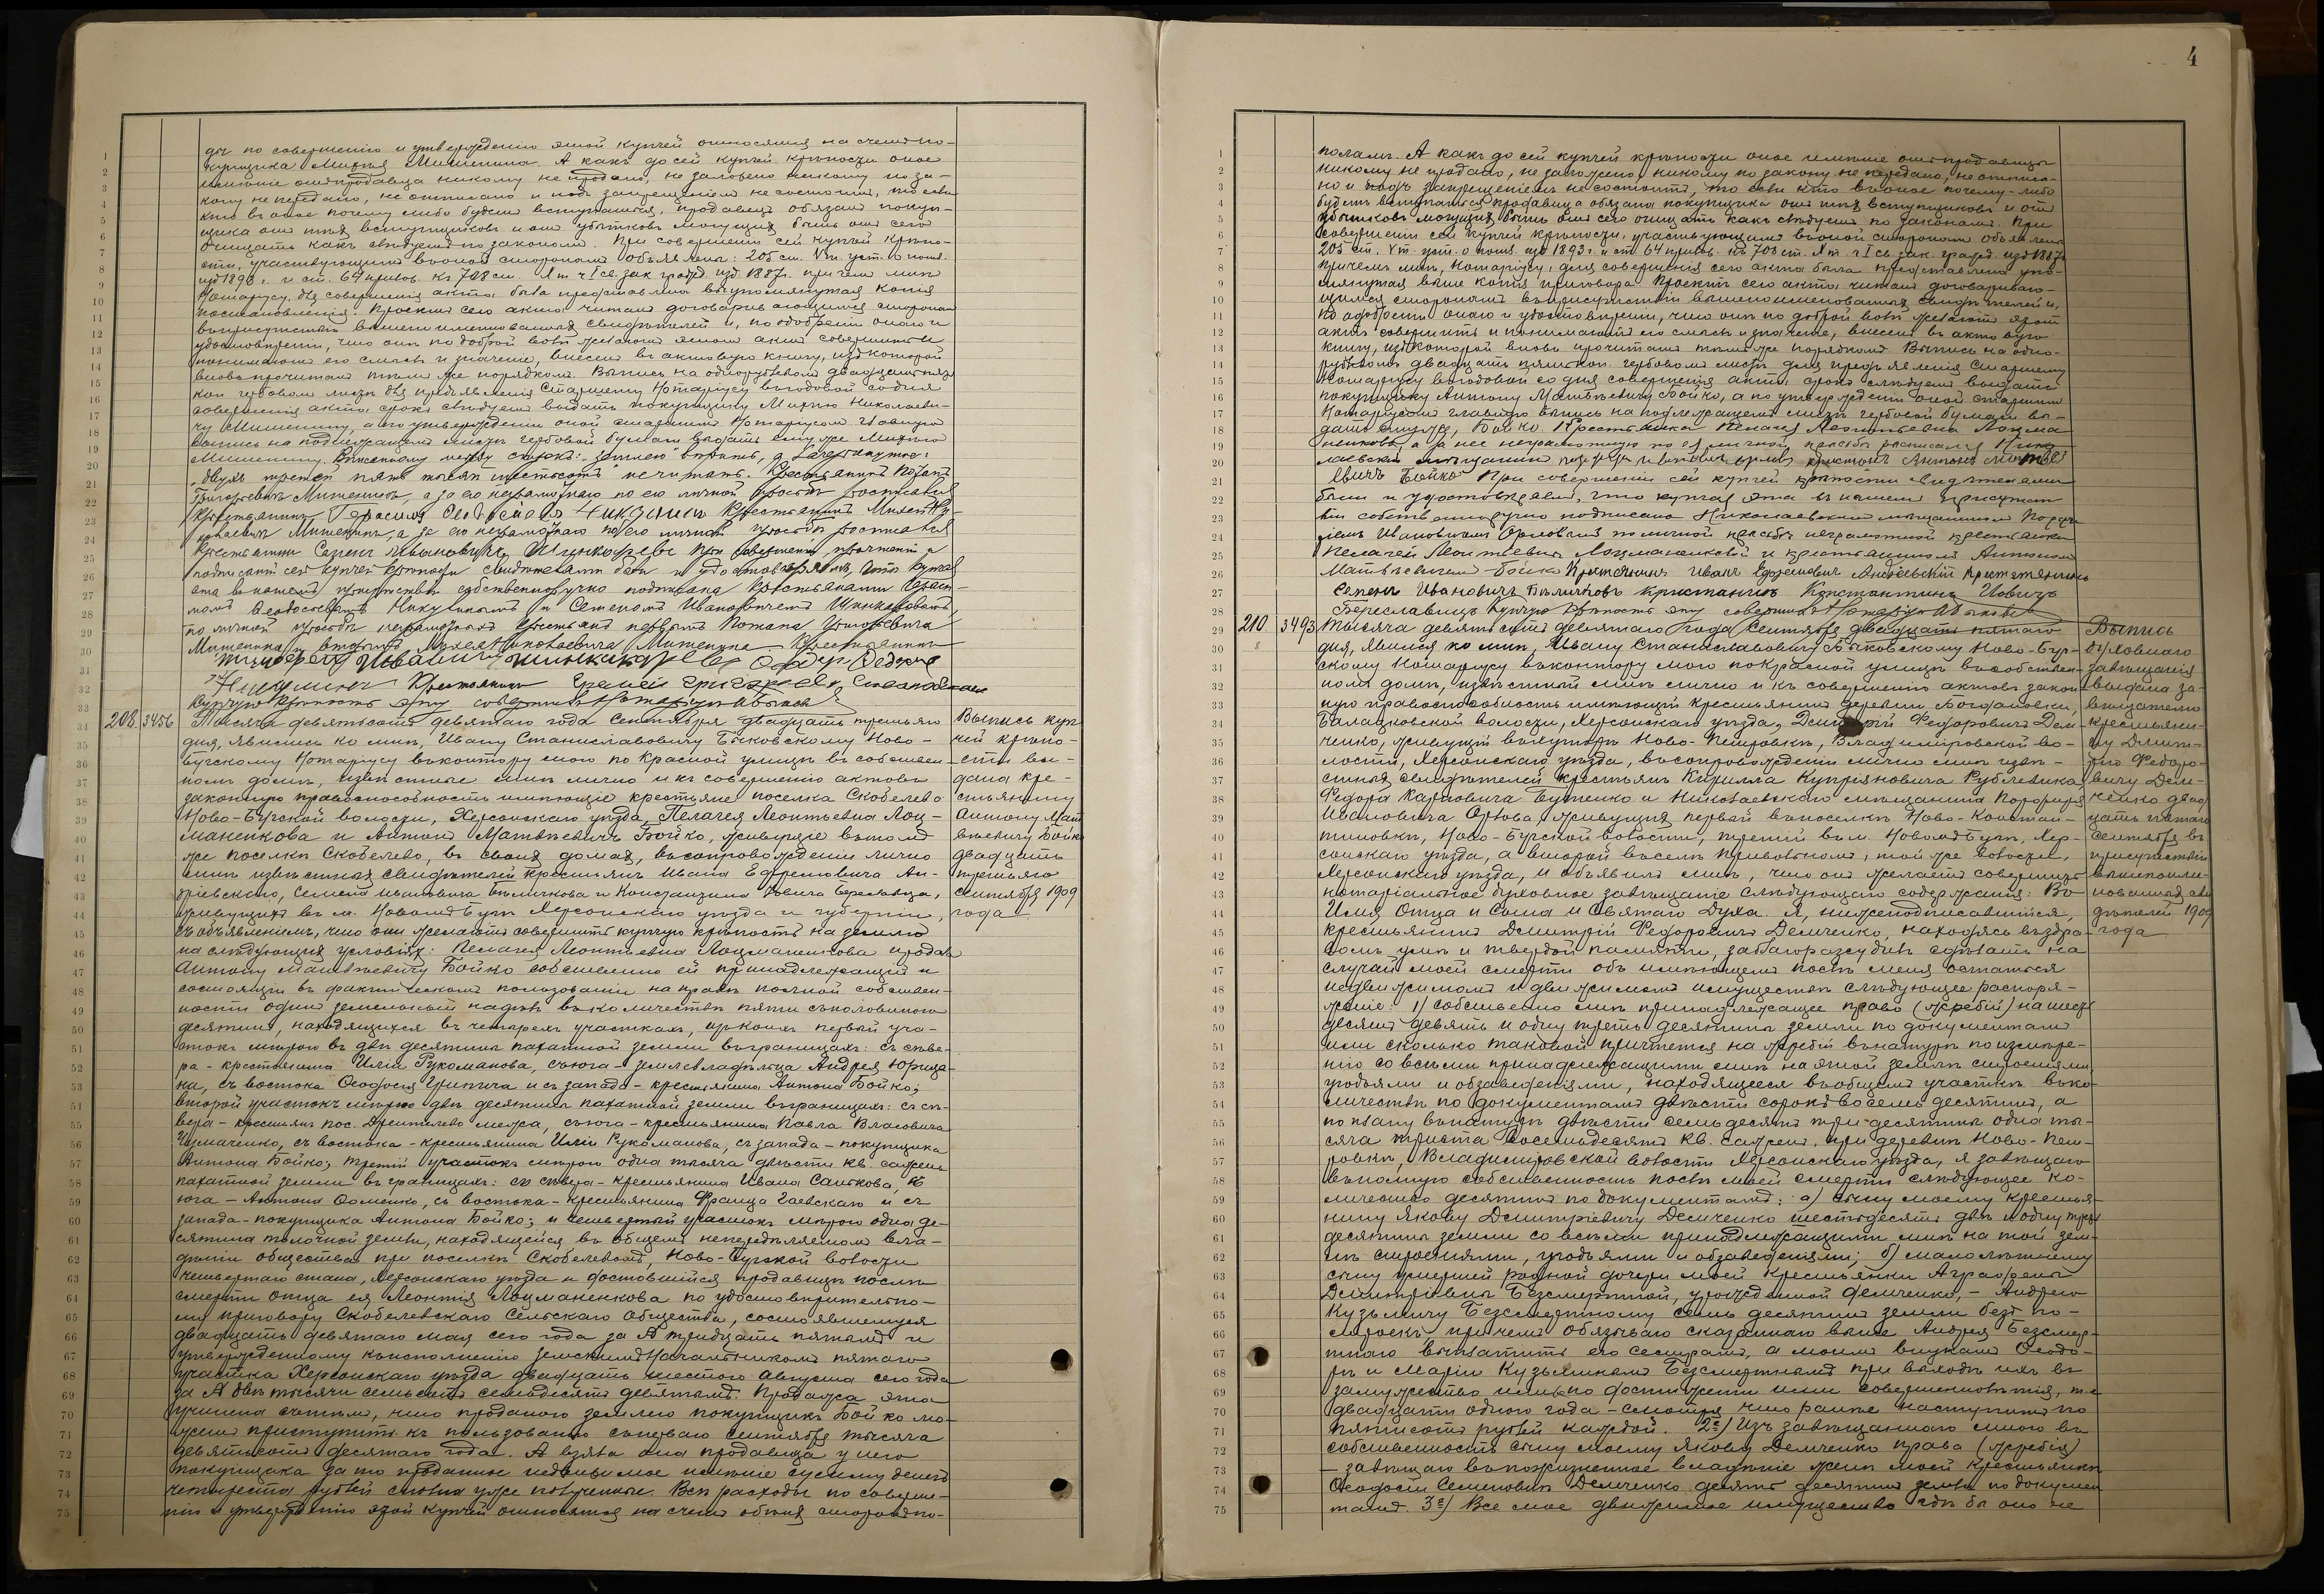 ды по совершенiю и утвержденiю этой купчей относятся на счетъ по-
купщика Михея Мишенина. А какъ до сей купчей крѣпости оное
имѣнiе отъ продавца никому не продано, не заложено никому по за-
кону не передано, не отписано и подъ запрещенiемъ не состоитъ, то если
кто въ оное почему либо будетъ вступаться, продавецъ обязанъ покуп-
щика отъ тѣхъ вступщиковъ и отъ убытковъ могущихъ быть отъ сего
очищать какъ слѣдуетъ по законамъ. При совершенiи сей купчей крѣпо-
сти, участвующимъ въ оной сторонамъ объявлены: 205 ст. Vт. уст. о пошл.
изд 1893 г. и ст. 64 прилож. къ 708 ст. Xт. ч I св. зак. гражд. изд 1887г. при чемъ мнѣ
Нотарiусу, для совершенiя акта, была представлена вышеупомянутая копiя
постановленiя. Проектъ сего акта читанъ договаривающимся сторонамъ
въ присутствiи вышеименованныхъ свидѣтелей и, по одобренiи онаго и
удостовѣренiи, что они по доброй волѣ желаютъ этотъ актъ совершить и
понимаютъ его смыслъ и значенiе, внесенъ въ актовую книгу, изъ которой
вновь прочитанъ тѣмъ же порядкомъ. Выпись на однорублевомъ двадцатипяти
коп гербовомъ листѣ для предъявленiя Старшему Нотарiусу въ годовой со дня
совершенiя акта, срокъ слѣдуетъ выдать покупщику Михею Николаеви-
чу Мишенину, а по утвержденiи оной старшимъ Нотарiусомъ главную
выпись на подлежащемъ листѣ гербовой бумаги выдать ему же Михею
Мишенину.
Крестьянинъ Потапъ
Григорьевичъ Мишенинъ, а за его неграмотнаго по его личной просьбѣ росписался
Крестьянинъ Герасимъ Никулинъ Крестьянинъ Михей Ни-
колаевичъ Мишенинъ, а за его неграмотнаго по его личной просьбѣ росписался
Крестьянинъ Семенъ Ивановичъ При совершенiи, прочтенiи и
подписанiи сей купчей крѣпости свидѣтелями были и удостовѣряемъ, что купчая
эта въ нашемъ присутствiи собственноручно подписана крестьянами Гераси-
момъ Никулинымъ и Семеномъ Ивановичемъ
по личной просьбѣ неграмотныхъ крестьянъ первымъ Потапа Григорьевича
Мишенина и вторымъ Михея Николаевича Мишенина Крестьянинъ
Крестьянинъ
Купчую крѣпость эту совершилъ Нотарiусъ Ив Быковскiй
208. 3456 Тысяча девятьсотъ девятаго года Сентября двадцать третьяго Выпись куп-
дня, явились ко мнѣ, Ивану Станиславовичу Быковскому Ново- чей крѣпо-
бугскому Нотарiусу въ контору мою по Красной улицѣ въ собствен- сти вы-
номъ домѣ, извѣстные мнѣ лично и къ совершенiю актовъ дана кре-
законную правоспособность имѣющiе крестьяне поселка Скобелево стьянину
Ново-Бугской волости, Херсонскаго уѣзда, Пелагея Леонтьевна Лоц- Антону Мат
маненкова и Антонъ Матвѣевичъ Бойко, живущiе въ томъ вѣевичу Бойко
же поселкѣ Скобелево, въ своихъ домахъ, въ сопровожденiи лично двадцать
мнѣ извѣстныхъ свидѣтелей крестьянъ Ивана Ефремовича Ан- третьяго
дрiевскаго, Семена Ивановича Бѣличкова и Константина Iовича Береславца, сентября 1909
живущихъ въ м. Новомъ Бугѣ Херсонскаго уѣзда и губернiи, года
съ объявленiемъ, что они желаютъ совершить купчую крѣпость на землю
на слѣдующихъ условiяхъ: Пелагея Леонтьевна Лоцманенкова продала
Антону Матвѣевичу Бойко собственно ей принадлежащiй и
состоящiй въ фактическомъ пользованiи на правѣ полной собствен-
ности одинъ земельный надѣлъ въ количествѣ пяти съ половиною
десятинъ, находящихся въ четырехъ участкахъ, изъ коихъ первый уча-
стокъ мѣрою въ двѣ десятины пахатной земли въ границахъ: съ сѣве-
ра - крестьянина Илiи Рукоманова, съ юга - землевладѣльца Андрея Юрица-
на, съ востока Феодосiя Грипича и съ запада - крестьянина Антона Бойко;
второй участокъ мѣрою двѣ десятины пахатной земли въ границахъ: съ сѣ-
вера - крестьянъ пос. межа, съ юга - крестьянина Павла Власовича
Чумаченко, съ востока - крестьянина Илiи Рукоманова, съ запада - покупщика
Антона Бойко; третiй участокъ мѣрою одна тысяча двѣсти кв. сажень
пахатной земли въ границахъ: съ сѣвера - крестьянина Ивана Салткова, съ
юга - Антона Ооменко, съ востока - крестьянина Франца Гаевскаго и съ
запада - покупщика Антона Бойко; и четвертый участокъ мѣрою одна де-
сятина толочной земли, находящейся въ общемъ нераздѣльномъ вла-
дѣнiи общества при поселкѣ Скобелевомъ, Ново-Бугской волости
четвертаго стана, Херсонскаго уѣзда и доставшiйся продавицѣ послѣ
смерти отца ея Леонтiя Лоцманенкова по удостовѣрительно-
му приговору Скобелевскаго Сельскаго Общества, состоявшемуся
двадцать девятаго мая сего года за № тридцать пятымъ и
утвержденному къ исполненiю Земскимъ Начальникомъ пятаго
участка Херсонскаго уѣзда двадцать шестого Августа сего года
за № двѣ тысячи семьсотъ семьдесятъ девятымъ. Продажа эта
учинена съ тѣмъ, что проданою землею покупщикъ Бойко мо-
жетъ приступить къ пользованiю съ перваго сентября тысяча
девятьсотъ десятаго года. А взяла она продавица у него
покупщика за то проданное недвижимое имѣнiе сумму денегъ
четыреста рублей сполна уже полученные. Всѣ расходы по соверше-
нiю и утвержденiю этой купчей относятся на счетъ обѣихъ сторонъ по-
4
поламъ. А какъ до сей купчей крѣпости оное имѣнiе отъ продавицы
никому не продано, не заложено, никому по закону не передано, не отписа-
но и подъ запрещенiемъ не состоитъ, то если кто въ оное почему-либо
будетъ вступаться продавица обязана покупщика отъ тѣхъ вступщиковъ и отъ
убытковъ могущихъ быть отъ сего очищать какъ слѣдуетъ по законамъ. При
совершенiи сей купчей крѣпости, участвующимъ въ оной сторонамъ объявлены
205 ст. Vт. уст. о пошл. изд 1893 г. и ст. 64 прилож. къ 708 ст. Xт. ч I св. зак. гражд. изд 1887г
причемъ мнѣ, Нотарiусу, для совершенiя сего акта была представлена упо-
мянутая выше копiя приговора. Проектъ сего акта, читанъ договариваю-
щимся сторонамъ въ присутствiи вышепоименованныхъ свидѣтелей и,
по одобренiи онаго и удостовѣренiи, что они по доброй волѣ желаютъ этотъ
актъ совершить и понимаютъ его смыслъ и значенiе, внесенъ въ актовую
книгу, изъ которой вновь прочитанъ тѣмъ же порядкомъ. Выпись на одно-
рублевомъ двадцать пятикоп. гербовомъ листѣ для предъявленiя Старшему
Нотарiусу въ годовой со дня совершенiя акта, срокъ слѣдуетъ выдать
покупщику Антону Матвѣевичу Бойко, а по утвержденiи оной старшимъ
Нотарiусомъ главную выпись на подлежащемъ листѣ гербовой бумаги вы-
дать ему же, Бойко. Крестьянка Пелагея Леонтьевна Лоцма
ненкова, а за нее неграмотную по ея личной просьбѣ росписался Нико
лаевскiй мѣщанинъ Порфирiй Ивановичъ Орловъ крестьянинъ Антонъ Матвѣ
евичъ Бойко При совершенiи сей купчей крѣпости свидѣтелями
были и удостовѣряемъ, что купчая эта въ нашемъ присутст
вiи собственноручно подписана Николаевскимъ мѣщаниномъ Порфи
рiемъ Ивановичемъ Орловымъ по личной просьбѣ неграмотной крестьянки
Пелагеи Леонтьевны Лоцманенковой и крестьяниномъ Антономъ
Матвѣевичемъ Бойко Крестьянинъ Иванъ Ефремовичъ Андрiевскiй Крестьянинъ
Семенъ Ивановичъ Бѣличковъ Крестьянинъ Константинъ Iовичъ
Береславецъ Купчую крѣпость эту совершилъ Нотарiусъ Ив Быковскiй
210. 3493 Тысяча девятьсотъ девятаго года Сентября двадцать пятаго Выпись
дня, явился ко мнѣ, Ивану Станиславовичу Быковскому Ново-Буг- духовнаго
скому Нотарiусу въ контору мою по Красной улицѣ въ собствен- завѣщанiя
номъ домѣ, извѣстный мнѣ лично и къ совершенiю актовъ закон- выдана за-
ную правоспособность имѣющiй крестьянинъ деревни Богдановки, вѣщателю
Балацковской волости, Херсонскаго уѣзда, Дмитрiй Федоровичъ Дем- крестьяни-
ченко, живущiй въ хуторѣ Ново-Петровкѣ, Владимiровской во- ну Дмит-
лости, Херсонскаго уѣзда, въ сопровожденiи лично мнѣ извѣ- рiю Федоро-
стныхъ свидѣтелей крестьянъ Кирилла Купрiяновича Рублевика вичу Дем-
Федора Карповича Бутенко и Николаевскаго мѣщанина Порфирiя ченко двад
Ивановича Орлова, живущихъ первый въ поселкѣ Ново-Констан- цать пятаго
тиновкѣ, Ново-Бугской волости, третiй въ м. Новомъ Бугѣ, Хер- сентября въ
сонскаго уѣзда, а второй въ селѣ Привольномъ, той же волости, присутствiи
Херсонскаго уѣзда, и объявилъ мнѣ, что онъ желаетъ совершить вышепоиме-
нотарiальное духовное завѣщанiе слѣдующаго содержанiя: Во нованныхъ сви
Имя Отца и Сына и Святаго Духа. Я, нижеподписавшiйся, дѣтелей 1909
крестьянинъ Дмитрiй Федоровичъ Демченко, находясь въ здра- года
вомъ умѣ и твердой памяти, заблагоразсудилъ сдѣлать на
случай моей смерти объ имѣющемъ послѣ меня остаться
недвижимомъ и движимомъ имуществѣ слѣдующее распоря-
женiе: 1) собственно мнѣ принадлежащее право (жребiй) на шесть
десятъ девять и одну треть десятины земли по документамъ
или сколько таковой причтется на жребiй въ натурѣ по измѣре-
нiю со всѣми принадлежащими мнѣ на этой землѣ строенiями,
угодьями и обзаведенiями, находящееся въ общемъ участкѣ въ ко-
личествѣ по документамъ двѣсти сорокъ восемь десятинъ, а
по плану въ натурѣ двѣсти семьдесятъ три десятины одна ты-
сяча триста восемьдесятъ кв. сажень, при деревнѣ Ново-Пет-
ровкѣ, Владимiровской волости Херсонскаго уѣзда, я завѣщаю
въ полную собственность послѣ моей смерти слѣдующее ко-
личество десятинъ по документамъ: а) сыну моему крестья-
нину Якову Дмитрiевичу Демченко шестьдесятъ двѣ и одну треть
десятины земли со всѣми принадлежащими мнѣ на той зем-
лѣ строенiями, угодьями и обзаведенiями; б) малолѣтнему
сыну умершей родной дочери моей крестьянки Аграфены
Дмитрiевны Безсмертной, урожденной Демченко, - Андрею
Кузьмичу Безсмертному семь десятинъ земли безъ по-
строекъ, причемъ обязываю сказаннаго выше Андрея Безсмер-
тнаго выплатить его сестрамъ, а моимъ внукамъ Феодо-
рѣ и Марiи Кузьминымъ Безсмертнымъ при выходѣ ихъ въ
замужество или по достиженiи ими совершеннолѣтiя, т. е
двадцати одного года - смотря что ранѣе наступитъ по
пятисотъ рублей каждой. 2е) Изъ завѣщаннаго мною въ
собственность сыну моему Якову Демченко права (жребiя)
- завѣщаю въ пожизненное владѣнiе женѣ моей крестьянкѣ
Феодосiи Семеновнѣ Демченко десять десятинъ земли по докумен
тамъ. 3е) Все мое движимое имущество гдѣ бы оно не